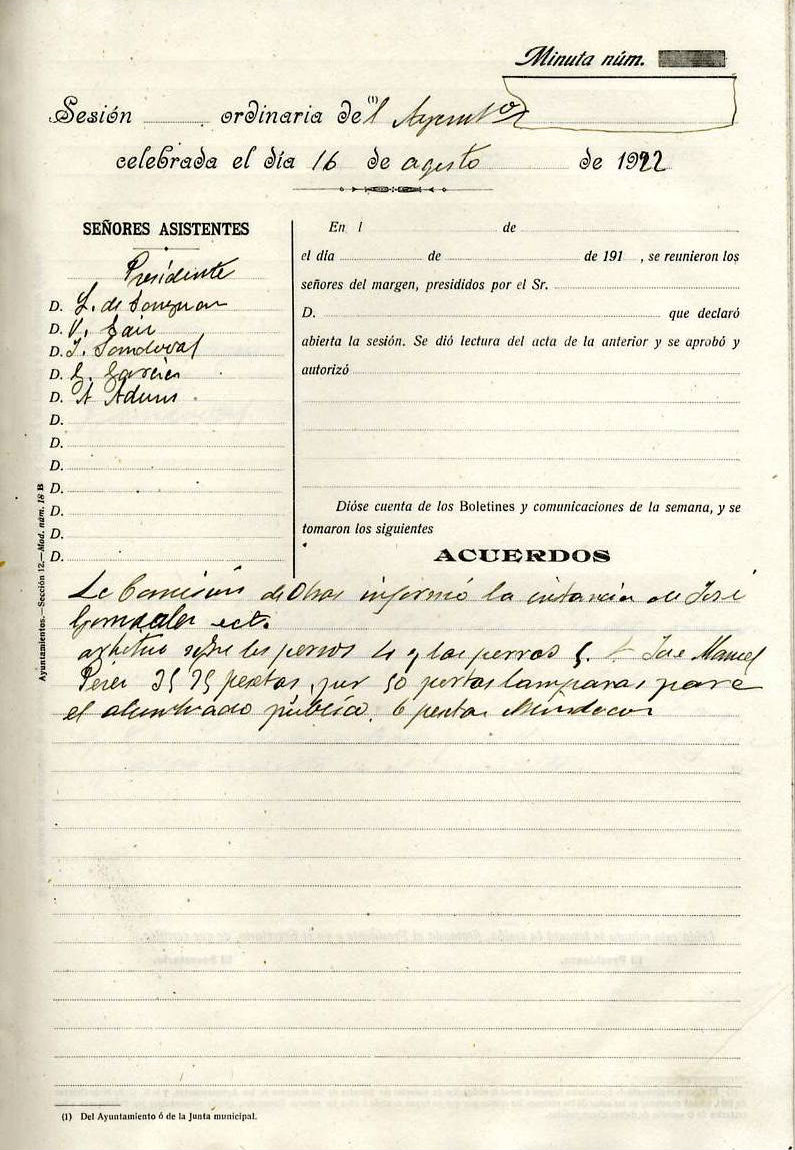 Minuta núm.
Sesión ordinaria de(1) l Ayunto
celebrada el día 16 de agosto de 1922
SEÑORES ASISTENTES
Presidente
D. L. de
D. V.
D. J. Sandoval
D. García
D. A
D.
D.
D.
D.
D.
D.
D.
En l de
el día de de 191 , se reunieron los
señores del margen, presididos por el Sr.
D. que declaró
abierta la sesión. Se dió lectura del acta de la anterior y se aprobó y
autorizó
Dióse cuenta de los Boletines y comunicaciones de la semana, y se
tomaron los siguientes
ACUERDOS
La Comisión de Obras informó la instancia de José
Gonzalez ect.
arbitrio sobre los perros 4 y los perros 5. A Jose Manuel
Perez pesetas por 50 portas lamparas para
el alumbrado público. 6 pesetas
Ayuntamientos.—Sección 12.—Mod. núm. 18 B
(1) Del Ayuntamiento ó de la Junta municipal.